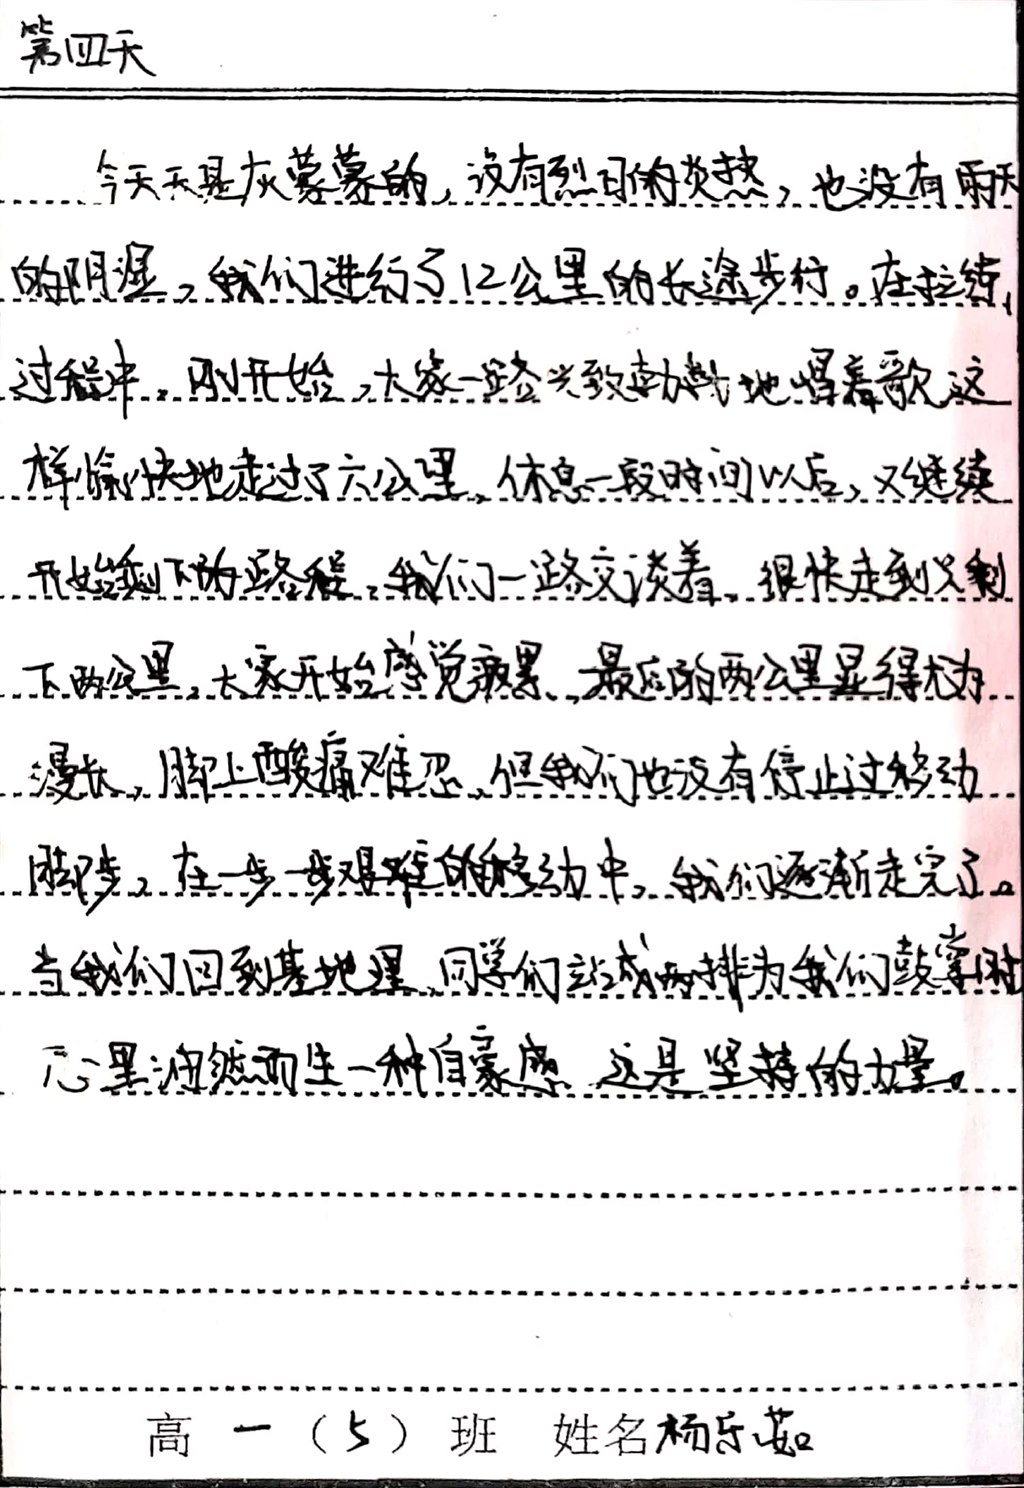 第四天
今天天是灰蒙蒙的，没有烈日的炎热，也没有雨天
的阴湿，我们进行了12公里的长途步行。在拉练
过程中，刚开始，大家一路兴致勃勃地唱着歌这
样愉快地走过了六公里，休息一段时间以后，又继续
开始剩下的路程，我们一路交谈着，很快走到只剩
下两公里，大家开始感觉疲累，最后的两公里显得尤为
漫长，脚上酸痛难忍，但我们也没有停止过移动
脚步，在一步一步艰难的移动中，我们逐渐走完了。
当我们回到基地里，同学们站成两排为我们鼓掌时
心里油然而生一种自豪感 这是坚持的力量。
高一（5）班 姓名杨乐茹